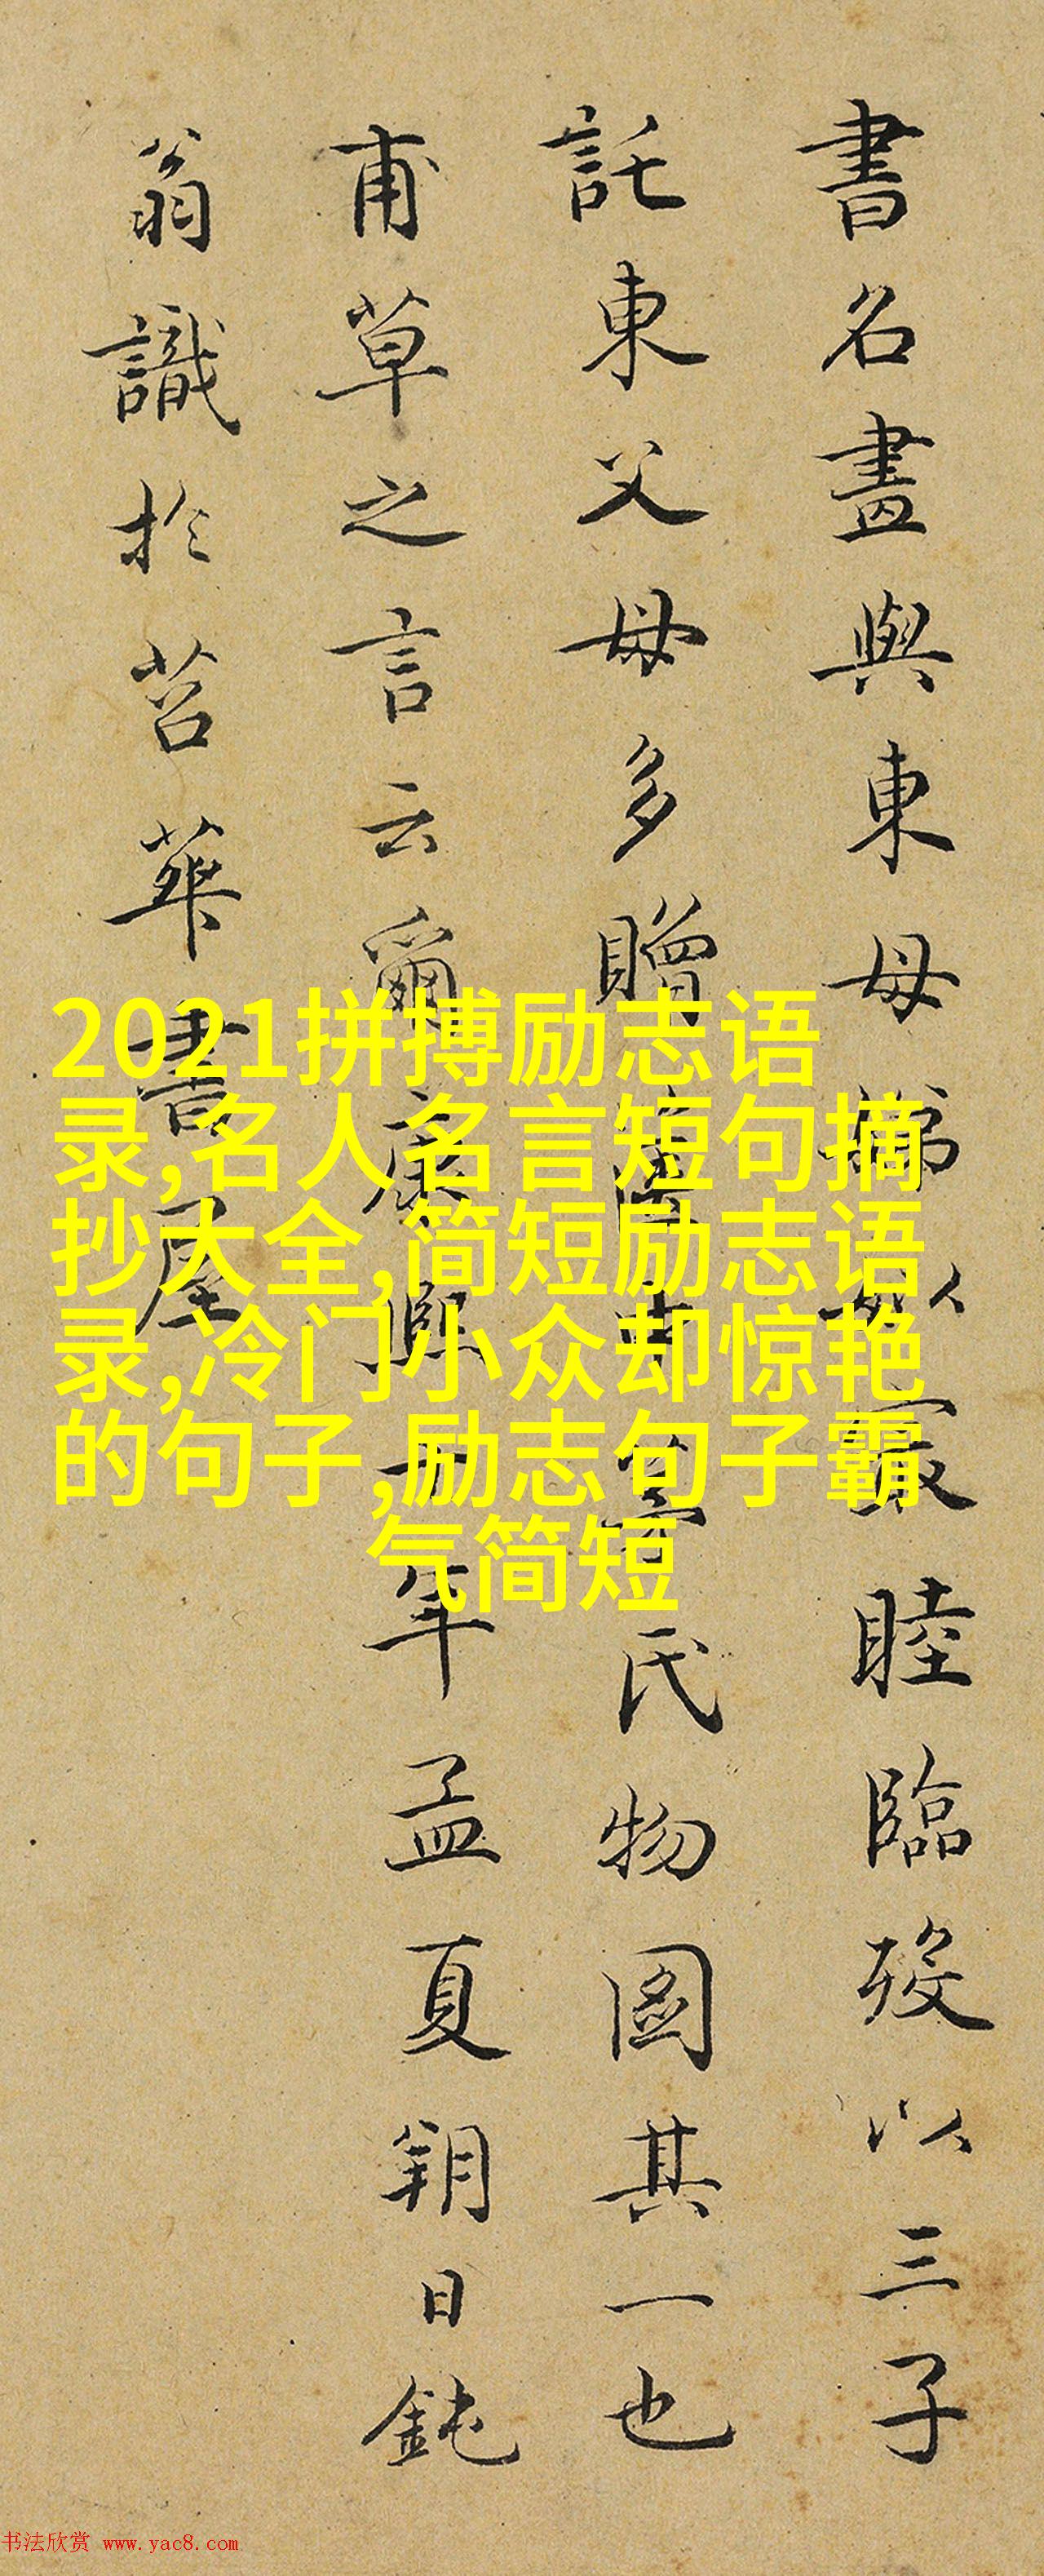 書名畫與東母娣以寂睦臨歿以三子
託東父母多贈遺此董氏物圖其一也
甫草之言云爾康熙十年孟夏朔日鈍
翁識於苕華書屋
2021拼搏励志语
录,名人名言短句摘
抄大全,简短励志语
录,冷门小众却惊艳
的句子,励志句子霸
气简短
书法欣赏 www.yac8.com